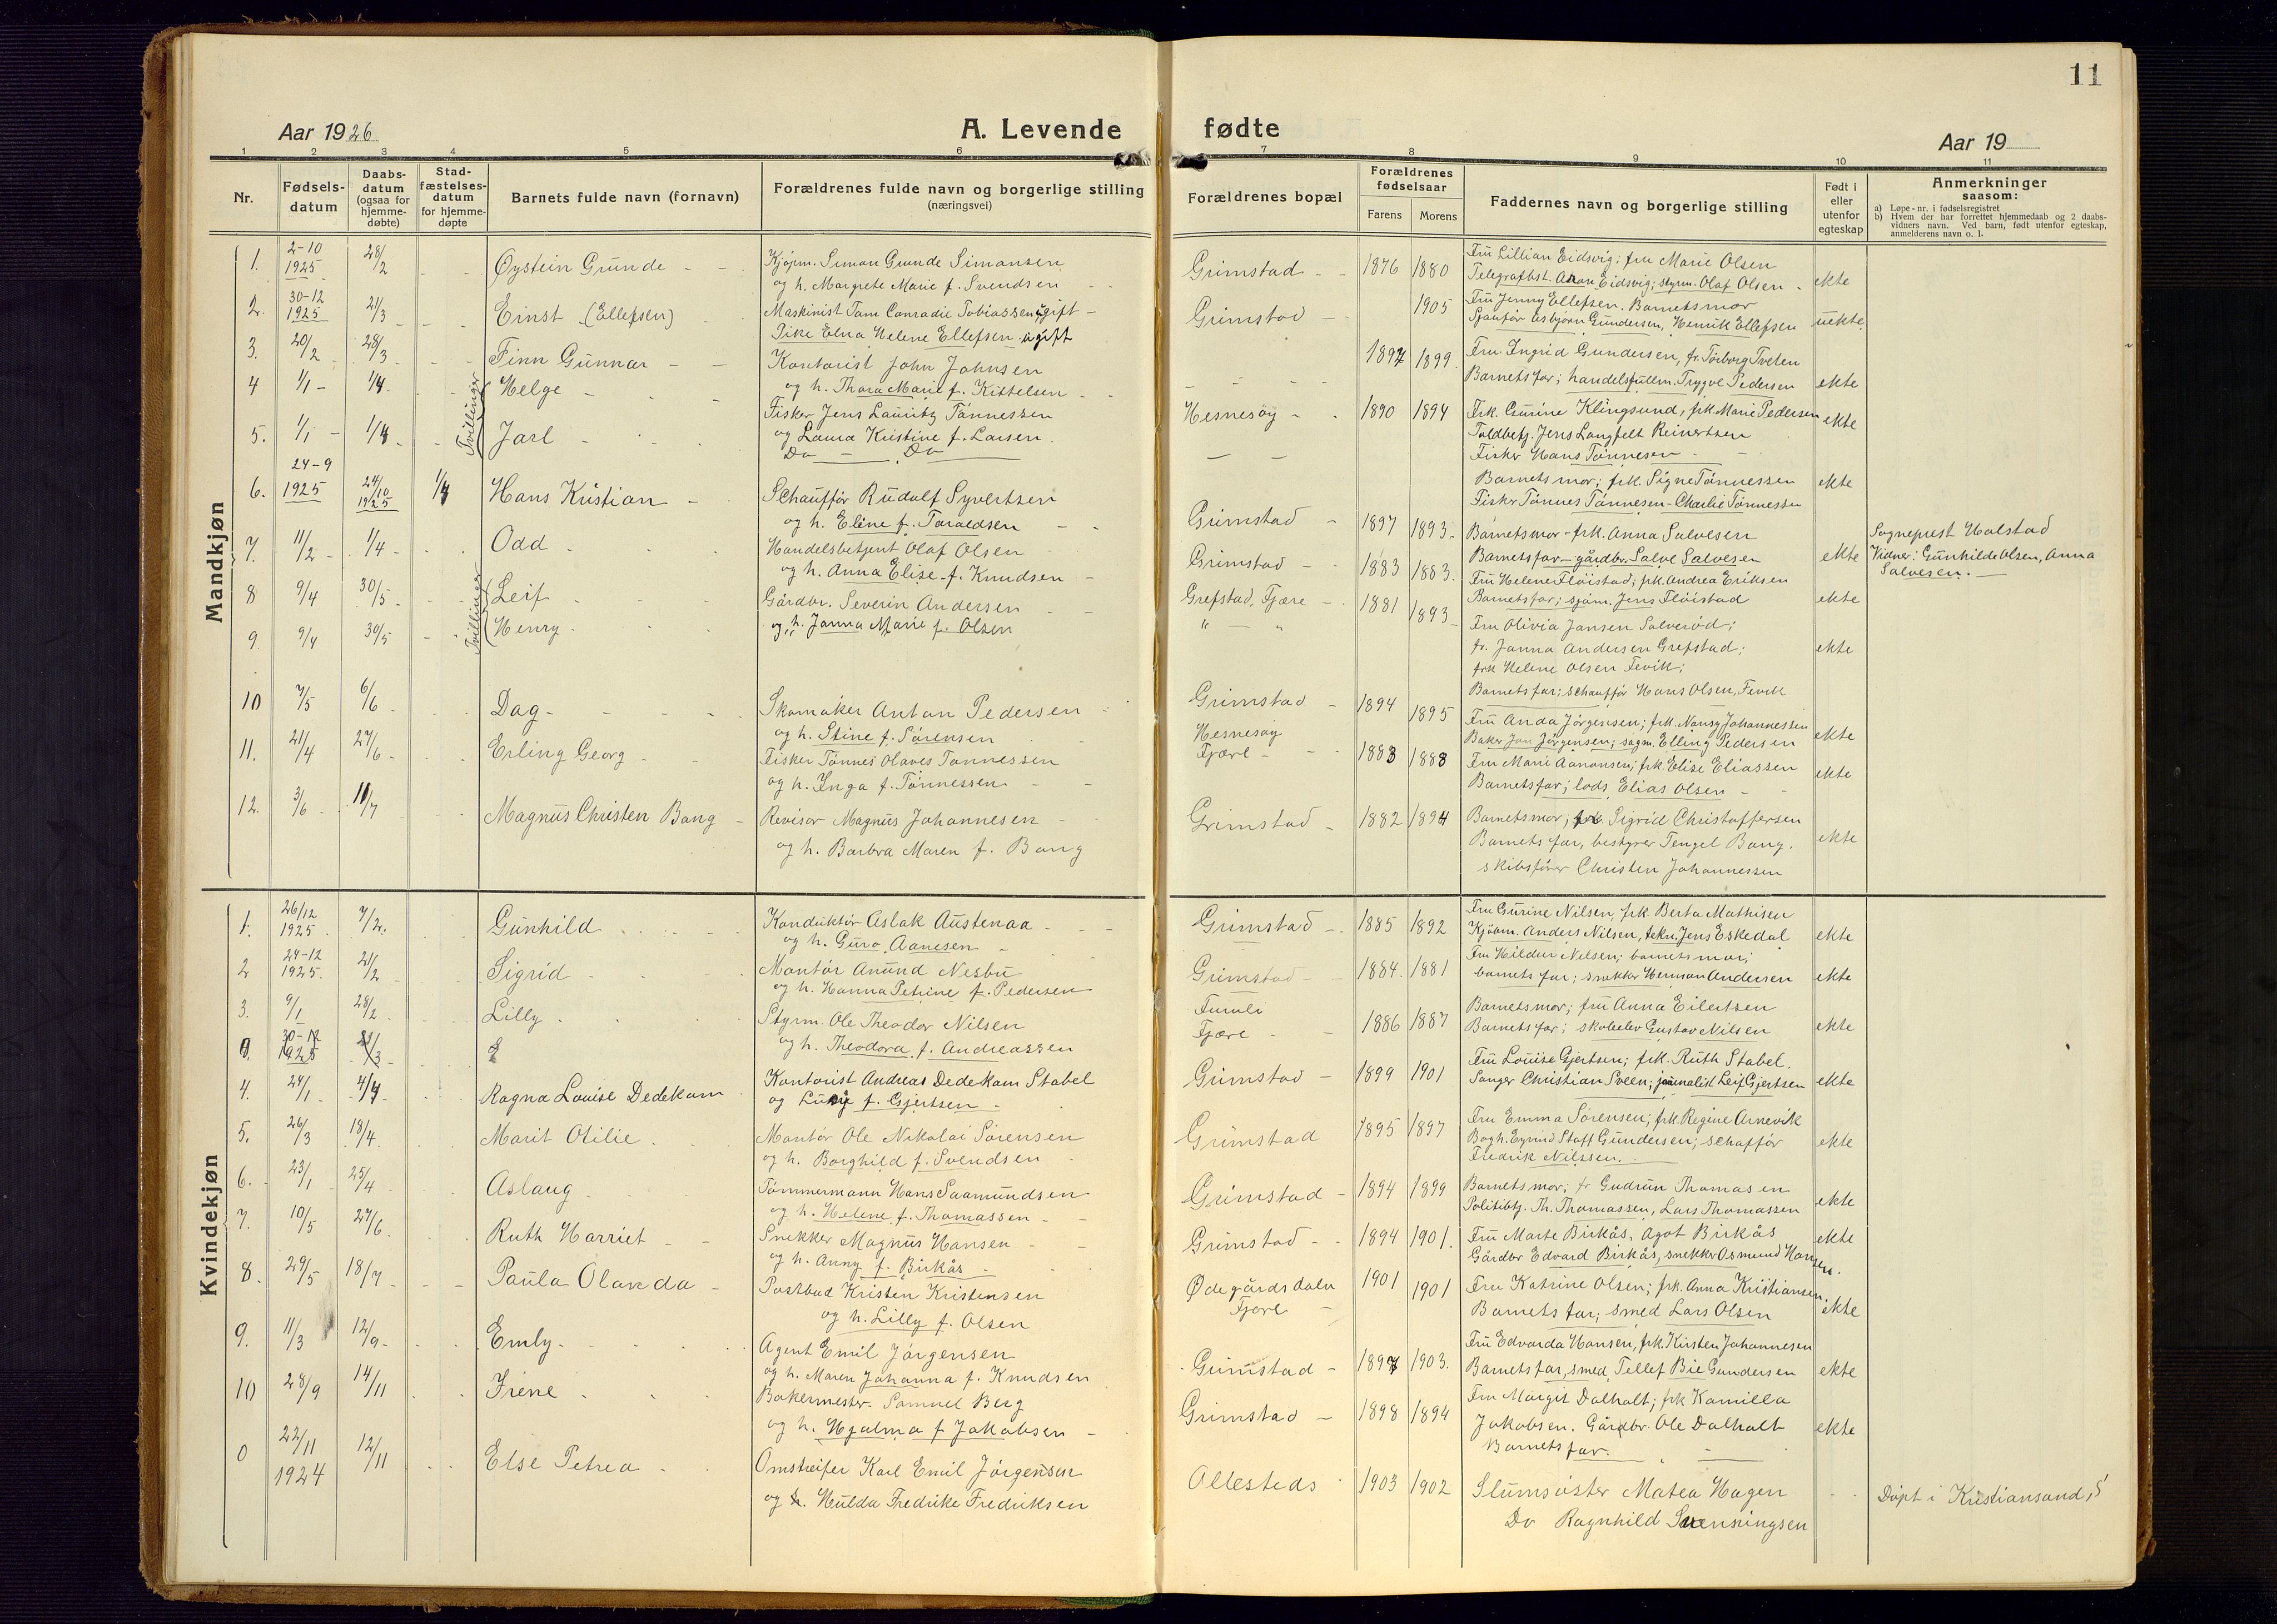 11
Aar 1926
A. Levende
fødte
Aar 19
1 2 3 4 5 6 7 8 9 10 11
Nr.
Fødsels-
datum
Daabs-
datum
(ogsaa for
hjemme-
døbte)
Stad-
fæstelses-
datum
for hjemme-
døpte
Barnets fulde navn (fornavn)
Forældrenes fulde navn og borgerlige stilling
(næringsvei)
Forældrenes bopæl
Forældrenes
fødselsaar
Farens Morens
Faddernes navn og borgerlige stilling
Født i
eller
utenfor
egteskap
Anmerkninger
saasom:
a) Løpe-nr. i fødselsregistret
b) Hvem der har forrettet hjemmedaab og 2 daabs-
vidners navn. Ved barn, født utenfor egteskap,
anmelderens navn o. l.
Mandkjøn
1. 2-10 1925 28/2 Øystein Gunde
Kjøpm. Simon Gunde Simonsen
og h. Margrete Marie f. Svendsen
Grimstad 1876 1880
Fru Lillian Eidsvig; fru Marie Olsen
Telegrafbst. Anon Eidsvig; styrm. Olaf Olsen ekte
2. 30-12 1925 21/3 Einst (Ellefsen)
Maskinist Tom Conradie Tobiassen ugift
Pike Elna Helene Ellefsen ugift
Grimstad 1905
Fru Jenny Ellefsen. Barnetsmor
Sjauför Esbjørn Gundersen, Henrik Ellefsen uekte
3. 20/2 28/3 Finn Gunnar
Kontorist John Johnsen
og h. Thora Marie f. Kittelsen
1897 1899
Fru Ingrid Gundersen, fr. Torborg Tveten
Barnets far; handelsfullm. Trygve Pedersen ekte
Tvillinger
4 1/1 1/4 Helge
Fisker Jens Lauritz Tönnessen
og Laura Kristine f. Larsen
Hesnesøy 1890 1894
Frk. Gurine Klingsund, frk. Marie Pedersen ekte
Toldbetj. Jens Langfelt Reinertsen
Fisker Hans Tønnesen
5. 1/1 1/4 Jarl
Do Do
Barnets mor; frk. Signe Tønnessen ekte
Fisker Tønnes Tønnesen - Charlie Tønnessen
6. 24-9 1925 24/10 1925 1/4 Hans Kristian
Schauffør Rudolf Syvertsen
og h. Eline f. Taraldsen
Grimstad 1897 1893
Barnetsmor - frk. Anna Salvesen
Barnetsfar - gårdbr. Salve Salvesen ekte
Sogneprest Halstad
Vidner: Gunhilde Olsen, Anna
Salvesen.
7. 11/2 1/4 Odd
Handelsbetjent Olaf Olsen
og h. Anna Elise f. Knudsen
Grimstad 1883 1883.
Fru Helene Fløistad; frk. Andrea Eriksen
Barnetsfar; sjøm. Jens Fløistad ekte
Tvillinger
8 9/4 30/5 Leif
Gårdbr. Severin Andersen
og h. Janna Marie f. Olsen
Grefstad, Fjære 1881 1893
Fru Olivia Jansen Salverød;
fr. Janna Andersen Grefstad; ekte
9. 9/4 30/5 Henry
" "
frk Helene Olsen Fevik;
Barnets far; schauffør Hans Olsen, Fevik
10 7/5 6/6 Dag
Skomaker Anton Pedersen
og h. Stine f. Sørensen
Grimstad 1894 1895
Fru Anda Jörgensen; frk. Nansy Johannessen
Baker Jon Jörgensen; sagm. Elling Pedersen ekte
11. 21/4 27/6 Erling Georg
Fisker Tønnes Olaves Tønnessen
og h. Inga f. Tönnessen
Hesnesøy
Fjære 1883 1888
Fru Marie Aanonsen; frk. Elise Eliassen
Barnets far; lods Elias Olsen ekte
12. 3/6 11/7 Magnus Christen Bang
Revisor Magnus Johannesen
og h. Barbra Maren f. Bang
Grimstad 1882 1894
Barnetsmor; frk Sigrid Christoffersen
Barnets far, bestyrer Tengel Bang. ekte
skibsfører Christen Johannessen
Kvindekjøn
1. 26/12 1925 7/2. Gunhild
Konduktör Aslak Austenaa
og h. Guro Aanesen
Grimstad 1885 1892
Fru Gurine Nilsen, frk. Berta Mathisen
Kjøbm. Anders Nilsen, tekn. Jens Eskedal ekte
2 24-12 1925. 21/2 Sigrid
Montör Anund Nesbu
og h. Hanna Petrine f. Pedersen
Grimstad 1884 1881
Fru Hildur Nilsen; barnets mor;
barnets far; snekker Herman Andersen ekte
3. 9/1 28/2 Lilly
Styrm. Ole Theodor Nilsen
og h. Theodora f. Andreassen
Furuli
Fjære 1886 1887
Barnetsmor; fru Anna Eilertsen
Barnets far; skoelev Gustav Nilsen ekte
30-12 1925 21/3
4. 24/1 4/4 Ragna Louise Dedekam
Kontorist Andreas Dedekam Stabel
og Lucy f. Gjertsen
Grimstad 1899 1901
Fru Louise Gjertsen; frk. Ruth Stabel.
Sanger Christian Sveen; journalist Leif Gjertsen ekte
5. 26/3 18/4 Marit Otilie
Montör Ole Nikolai Sörensen
og h. Borghild f. Svendsen
Grimstad 1895 1897
Fru Emma Sørensen; frk. Regine Arnevik
Bogh. Eyvind Staff Gundersen; schaffør ekte
Fredrik Nilssen.
6. 23/1 25/4 Aslaug
Tömmermann Hans Saamundsen
og h. Helene f. Thomassen
Grimstad 1894 1899
Barnetsmor; fr Gudrun Thomasen
Politibtj. Th. Thomassen, Lars Thomassen ekte
7. 10/5 27/6 Ruth Harriet
Snekker Magnus Hansen
og h. Anny f. Birkås
Grimstad 1894 1901.
Fru Marte Birkås, Agot Birkås ekte
Gårdbr Edvard Birkås, snekker Osmund Hansen.
8. 29/5 18/7 Paula Olanda
Postbud Kristen Kristensen
og h. Lilly f. Olsen
Ødegårdsdalen
Fjære 1901 1901
Fru Katrine Olsen; frk. Anna Kristiansen.
Barnets far; smed Lars Olsen ekte
9. 11/3 12/9 Emly
Agent Emil Jörgensen
og h. Maren Johanna f. Knudsen
Grimstad 1897 1903.
Fru Edvarda Hansen, frk. Kirsten Johannesen
Barnets far, smed Tellef Bie Gundersen ekte
10 28/9 14/11 Irene
Bakermester Samuel Berg
og h. Hjalma f. Jakobsen
Grimstad 1898 1894
Fru Margit Dalholt; frk Kamilla
Jakobsen. Gårdbr. Ole Dalholt ekte
Barnets far.
0 22/11 1924 12/11 Else Petrea
Omstreifer Karl Emil Jörgensen
og h. Hulda Fredrike Fredriksen
Allesteds 1903 1902
Slumsøster Matea Hagen
Do Ragnhild Svenningsen
Døpt i Kristiansand, S